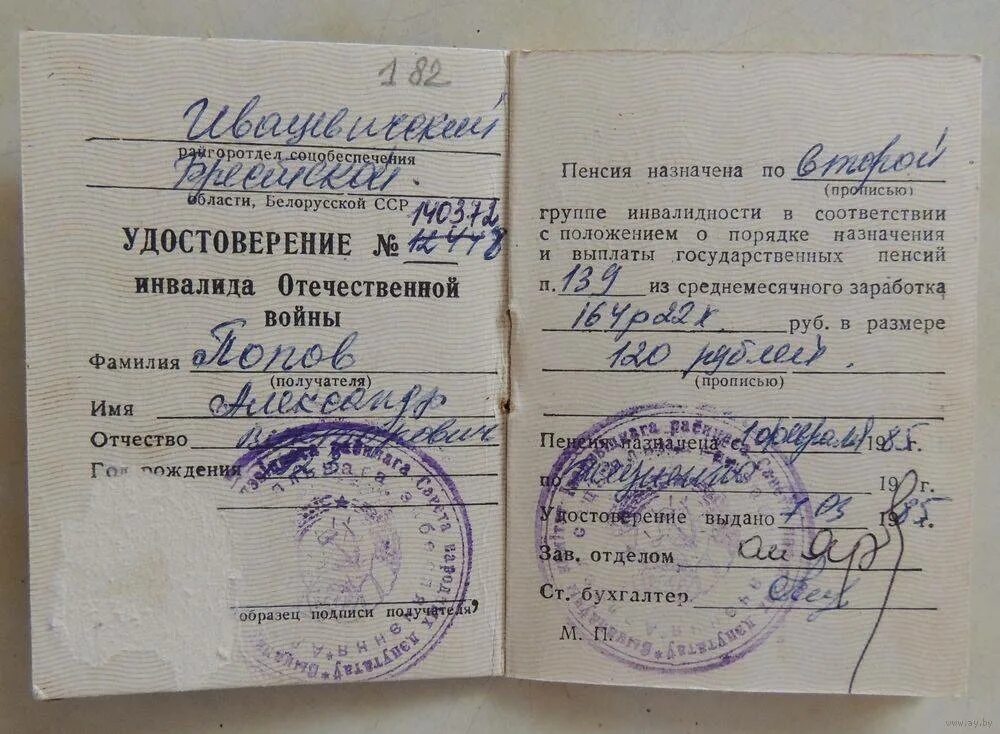 182
Ивацевичский
райгоротдел соцобеспечения
Брестской
области, Белорусской ССР
140372
УДОСТОВЕРЕНИЕ № 12448
инвалида Отечественной
войны
Фамилия Попов
(получателя)
Имя Александр
Отчество Викторович
Год рождения
образец подписи получателя
Пенсия назначена по второй
(прописью)
группе инвалидности в соответствии
с положением о порядке назначения
и выплаты государственных пенсий
п. 139 из среднемесячного заработка
164р22к руб. в размере
120 рублей.
(прописью)
Пенсия назначена с 1 февраля 1985г.
по 19 г.
Удостоверение выдано 7 03 1985г.
Зав. отделом
Ст. бухгалтер
М. П.
www.ay.by